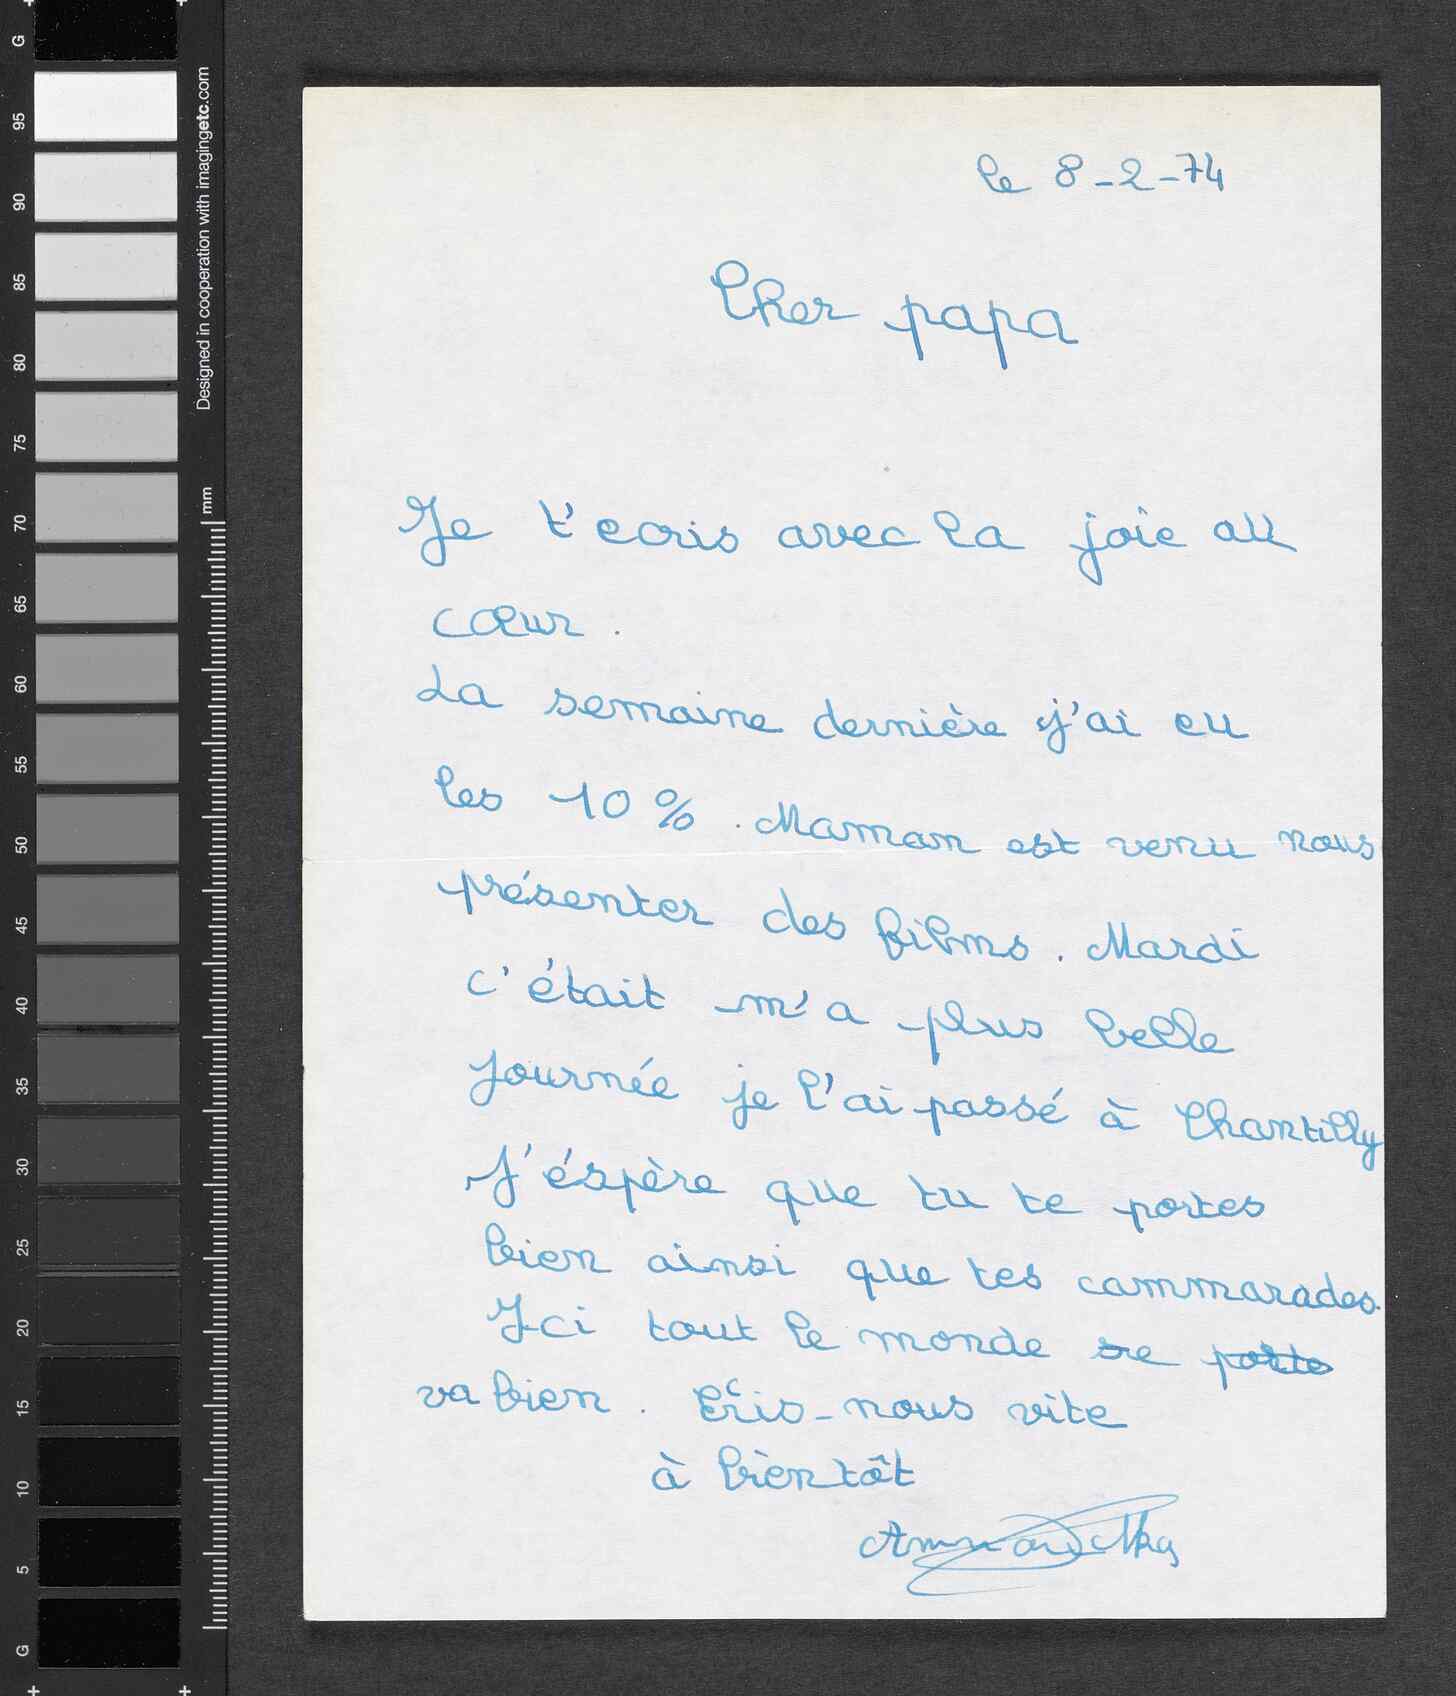 le 8-2-74
Cher papa
Je t'ecris avec la joie au
cœur.
La semaine dernière j'ai eu
les 10%. Maman est venu nous
présenter des films. Mardi
c'était m'a plus belle
journée je l'ai passé à Chantilly
J'éspère que tu te portes
bien ainsi que tes cammarades.
Ici tout le monde se porte
va bien. Ecris-nous vite
à bientôt
G
95
90
85
80
75
70
65
60
55
50
45
40
35
30
25
20
15
10
5
G
Designed in cooperation with imagingetc.com
mm